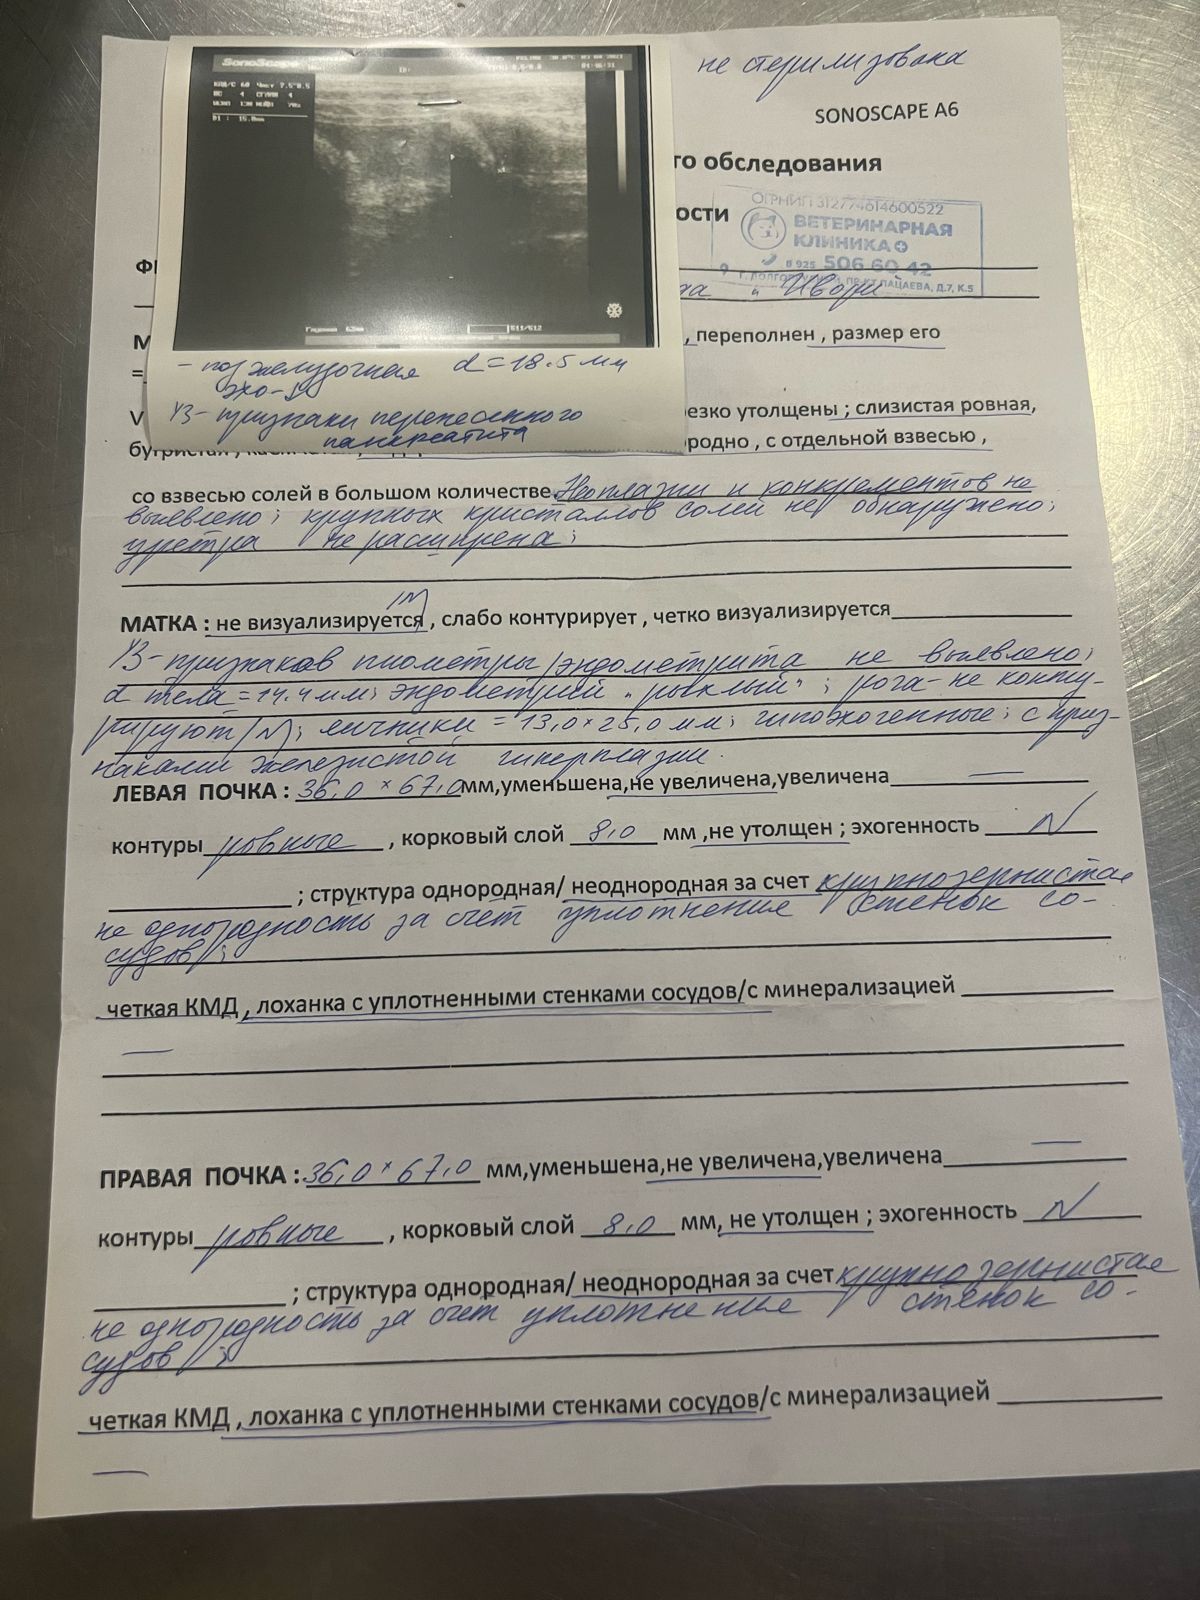 SonoScape
не стерилизована
SONOSCAPE A6
го обследования
ости
ОГРНИП 312774614600522
ВЕТЕРИНАРНАЯ
КЛИНИКА
8 925 506 60 42
ПАЦАЕВА, Д.7, К.5
"Ивори"
М , переполнен , размер его
=
- поджелудочная d = 18.5 мм
эхо-
V резко утолщены ; слизистая ровная,
УЗ-признаки перенесенного
панкреатита
бугристая , родно , с отдельной взвесью ,
со взвесью солей в большом количестве. Неоплазии и конкрементов не
выявлено; крупных кристаллов солей не обнаружено;
уретра не расширена;
МАТКА : не визуализируется , слабо контурирует , четко визуализируется
УЗ-признаков пиометры/эндометрита не выявлено;
d тела = 14.4 мм; эндометрий "рыхлый" ; рога - не конту-
рируют/N; яичники = 13,0 × 25,0 мм; гипоэхогенные; с приз-
наками железистой гиперплазии.
ЛЕВАЯ ПОЧКА : 36,0 × 67,0 мм,уменьшена,не увеличена,увеличена
контуры ровные , корковый слой 8,0 мм ,не утолщен ; эхогенность N
; структура однородная/ неоднородная за счет крупнозернистая
неоднородность за счёт уплотнения стенок со-
судов ;
четкая КМД , лоханка с уплотненными стенками сосудов/с минерализацией
ПРАВАЯ ПОЧКА : 36,0 × 67,0 мм,уменьшена,не увеличена,увеличена
контуры ровные , корковый слой 8,0 мм, не утолщен ; эхогенность N
; структура однородная/ неоднородная за счет крупнозернистая
неоднородность за счёт уплотнение стенок со-
судов ;
четкая КМД , лоханка с уплотненными стенками сосудов/с минерализацией